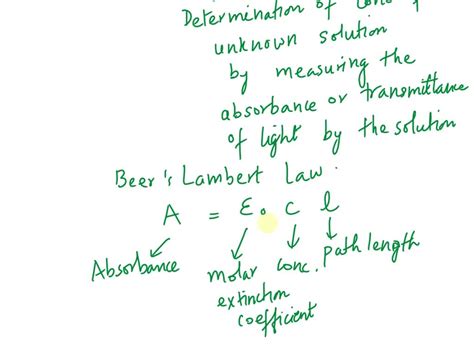 Determination of conc of
unknown solution
by measuring the
absorbance or transmittance
of light by the solution
Beer's Lambert Law.
A = ε. c l
Absorbance molar conc. Path length
extinction
coefficient